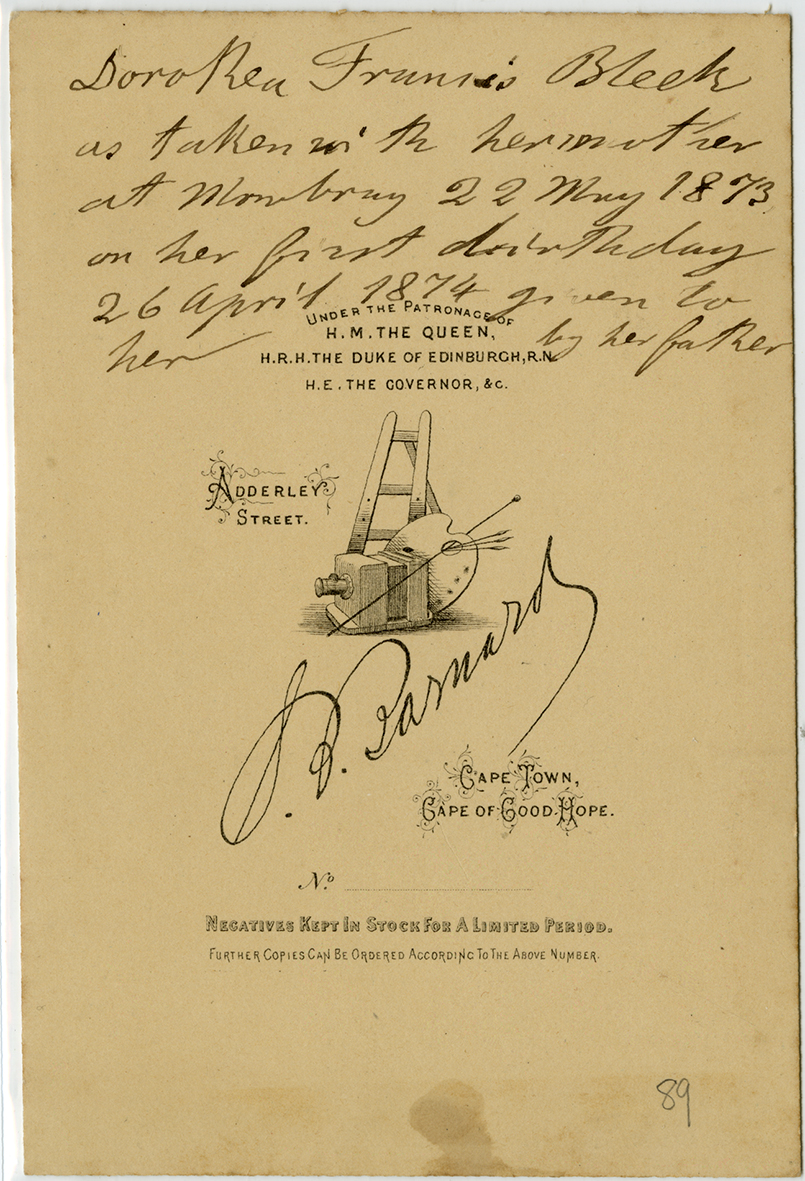 Dorothea Francis Bleek
as taken with her mother
at Mowbray 22 May 1873
on her first birthday
26 April 1874 given to
her by her father
UNDER THE PATRONAGE OF
H.M. THE QUEEN,
H.R.H. THE DUKE OF EDINBURGH, R.N.
H.E. THE GOVERNOR, &c.
ADDERLEY
STREET.
S. B. Barnard
CAPE TOWN,
CAPE OF GOOD HOPE.
No.
NEGATIVES KEPT IN STOCK FOR A LIMITED PERIOD.
FURTHER COPIES CAN BE ORDERED ACCORDING TO THE ABOVE NUMBER.
89